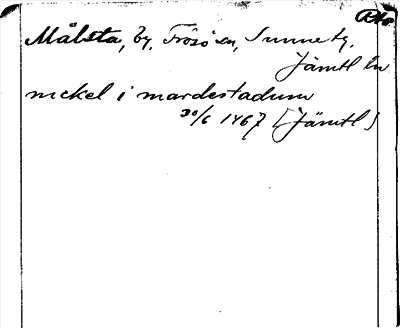 Målsta, by, Frösö sn, Sunne tg,
Jämtl ln
nickel i mardestadum
30/6 1467 (Jämtl)